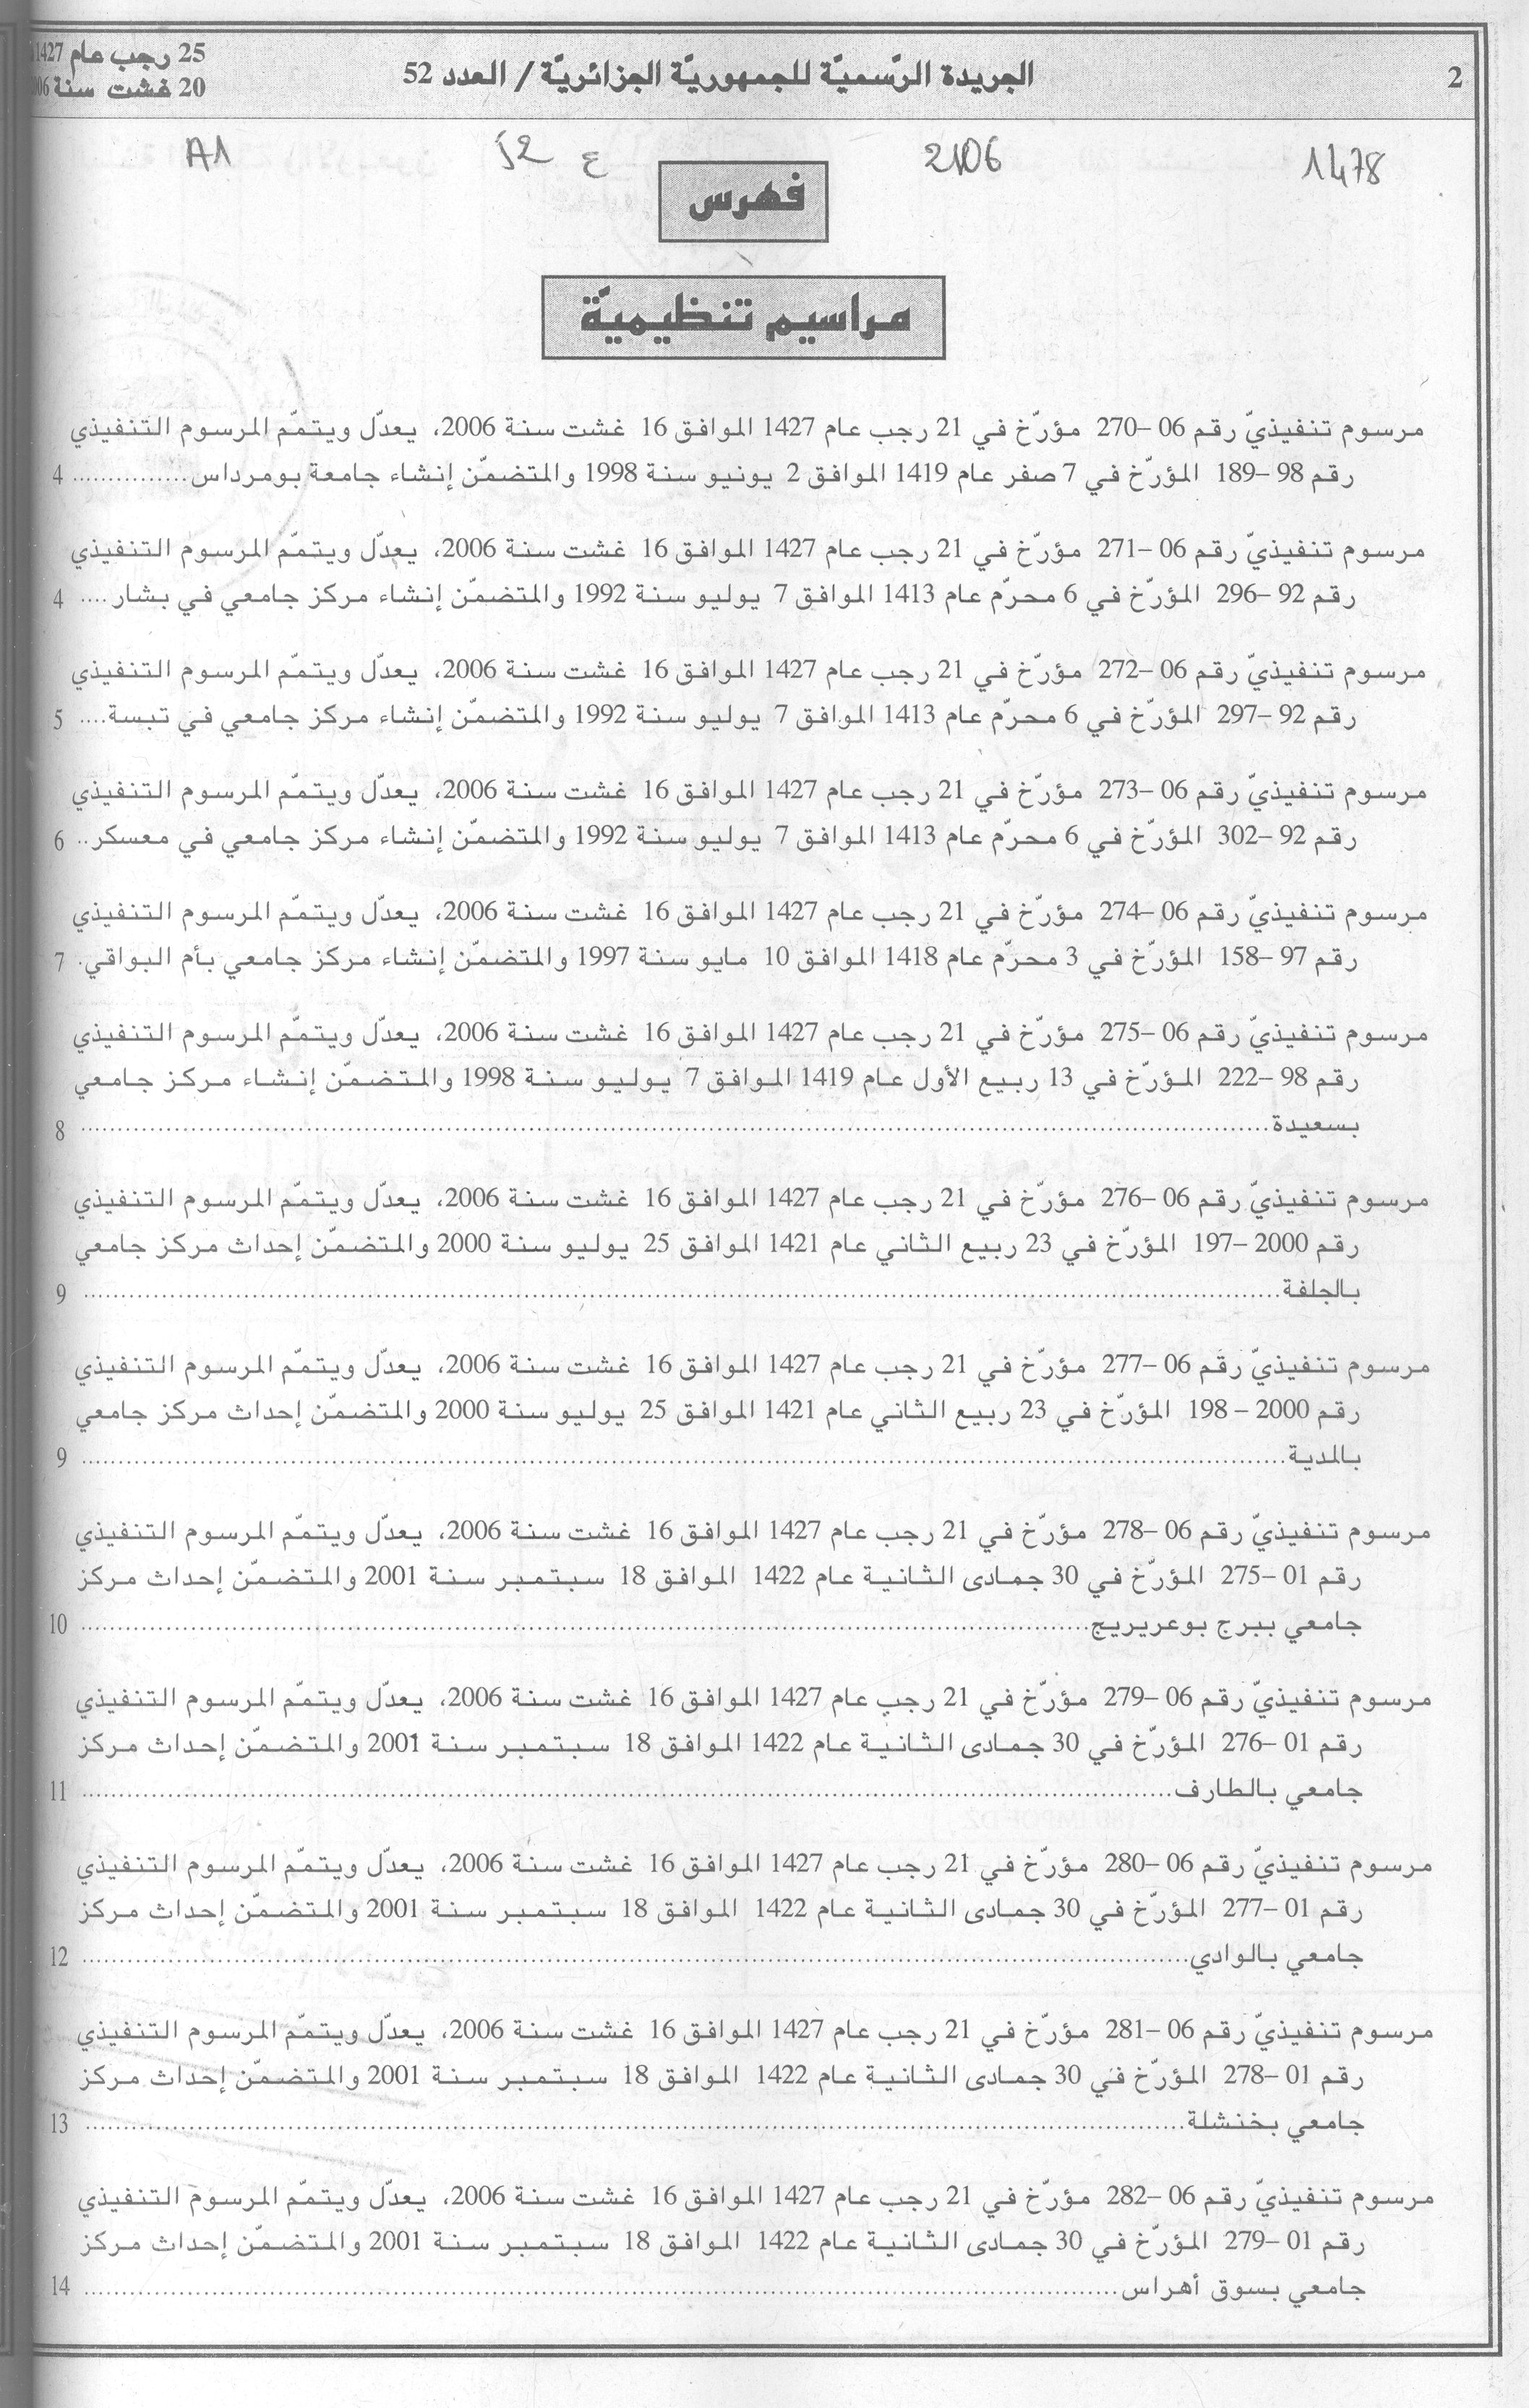 2
الجريدة الرّسميّة للجمهوريّة الجزائريّة / العدد 52
25 رجب عام 1427
20 غشت سنة
1478
2106
ع 52
A1
فهرس
مراسيم تنظيميّة
مرسوم تنفيذيّ رقم 06 –270 مؤرّخ في 21 رجب عام 1427 الموافق 16 غشت سنة 2006، يعدّل ويتمّم المرسوم التنفيذي
رقم 98 –189 المؤرّخ في 7 صفر عام 1419 الموافق 2 يونيو سنة 1998 والمتضمّن إنشاء جامعة بومرداس................ 4
مرسوم تنفيذيّ رقم 06 –271 مؤرّخ في 21 رجب عام 1427 الموافق 16 غشت سنة 2006، يعدّل ويتمّم المرسوم التنفيذي
رقم 92 –296 المؤرّخ في 6 محرّم عام 1413 الموافق 7 يوليو سنة 1992 والمتضمّن إنشاء مركز جامعي في بشار.... 4
مرسوم تنفيذيّ رقم 06 –272 مؤرّخ في 21 رجب عام 1427 الموافق 16 غشت سنة 2006، يعدّل ويتمّم المرسوم التنفيذي
رقم 92 –297 المؤرّخ في 6 محرّم عام 1413 الموافق 7 يوليو سنة 1992 والمتضمّن إنشاء مركز جامعي في تبسة.... 5
مرسوم تنفيذيّ رقم 06 –273 مؤرّخ في 21 رجب عام 1427 الموافق 16 غشت سنة 2006، يعدّل ويتمّم المرسوم التنفيذي
رقم 92 –302 المؤرّخ في 6 محرّم عام 1413 الموافق 7 يوليو سنة 1992 والمتضمّن إنشاء مركز جامعي في معسكر.. 6
مرسوم تنفيذيّ رقم 06 –274 مؤرّخ في 21 رجب عام 1427 الموافق 16 غشت سنة 2006، يعدّل ويتمّم المرسوم التنفيذي
رقم 97 –158 المؤرّخ في 3 محرّم عام 1418 الموافق 10 مايو سنة 1997 والمتضمّن إنشاء مركز جامعي بأم البواقي. 7
مرسوم تنفيذيّ رقم 06 –275 مؤرّخ في 21 رجب عام 1427 الموافق 16 غشت سنة 2006، يعدّل ويتمّم المرسوم التنفيذي
رقم 98 –222 المؤرّخ في 13 ربيع الأول عام 1419 الموافق 7 يوليو سنة 1998 والمتضمّن إنشاء مركز جامعي
بسعيدة................................ 8
مرسوم تنفيذيّ رقم 06 –276 مؤرّخ في 21 رجب عام 1427 الموافق 16 غشت سنة 2006، يعدّل ويتمّم المرسوم التنفيذي
رقم 2000 –197 المؤرّخ في 23 ربيع الثاني عام 1421 الموافق 25 يوليو سنة 2000 والمتضمّن إحداث مركز جامعي
بالجلفة................................ 9
مرسوم تنفيذيّ رقم 06 –277 مؤرّخ في 21 رجب عام 1427 الموافق 16 غشت سنة 2006، يعدّل ويتمّم المرسوم التنفيذي
رقم 2000 – 198 المؤرّخ في 23 ربيع الثاني عام 1421 الموافق 25 يوليو سنة 2000 والمتضمّن إحداث مركز جامعي
بالمدية................................ 9
مرسوم تنفيذيّ رقم 06 –278 مؤرّخ في 21 رجب عام 1427 الموافق 16 غشت سنة 2006، يعدّل ويتمّم المرسوم التنفيذي
رقم 01 –275 المؤرّخ في 30 جمادى الثانية عام 1422 الموافق 18 سبتمبر سنة 2001 والمتضمّن إحداث مركز
جامعي ببرج بوعريريج................................ 10
مرسوم تنفيذيّ رقم 06 –279 مؤرّخ في 21 رجب عام 1427 الموافق 16 غشت سنة 2006، يعدّل ويتمّم المرسوم التنفيذي
رقم 01 –276 المؤرّخ في 30 جمادى الثانية عام 1422 الموافق 18 سبتمبر سنة 2001 والمتضمّن إحداث مركز
جامعي بالطارف................................ 11
مرسوم تنفيذيّ رقم 06 –280 مؤرّخ في 21 رجب عام 1427 الموافق 16 غشت سنة 2006، يعدّل ويتمّم المرسوم التنفيذي
رقم 01 –277 المؤرّخ في 30 جمادى الثانية عام 1422 الموافق 18 سبتمبر سنة 2001 والمتضمّن إحداث مركز
جامعي بالوادي................................ 12
مرسوم تنفيذيّ رقم 06 –281 مؤرّخ في 21 رجب عام 1427 الموافق 16 غشت سنة 2006، يعدّل ويتمّم المرسوم التنفيذي
رقم 01 –278 المؤرّخ في 30 جمادى الثانية عام 1422 الموافق 18 سبتمبر سنة 2001 والمتضمّن إحداث مركز
جامعي بخنشلة................................ 13
مرسوم تنفيذيّ رقم 06 –282 مؤرّخ في 21 رجب عام 1427 الموافق 16 غشت سنة 2006، يعدّل ويتمّم المرسوم التنفيذي
رقم 01 –279 المؤرّخ في 30 جمادى الثانية عام 1422 الموافق 18 سبتمبر سنة 2001 والمتضمّن إحداث مركز
جامعي بسوق أهراس................................ 14